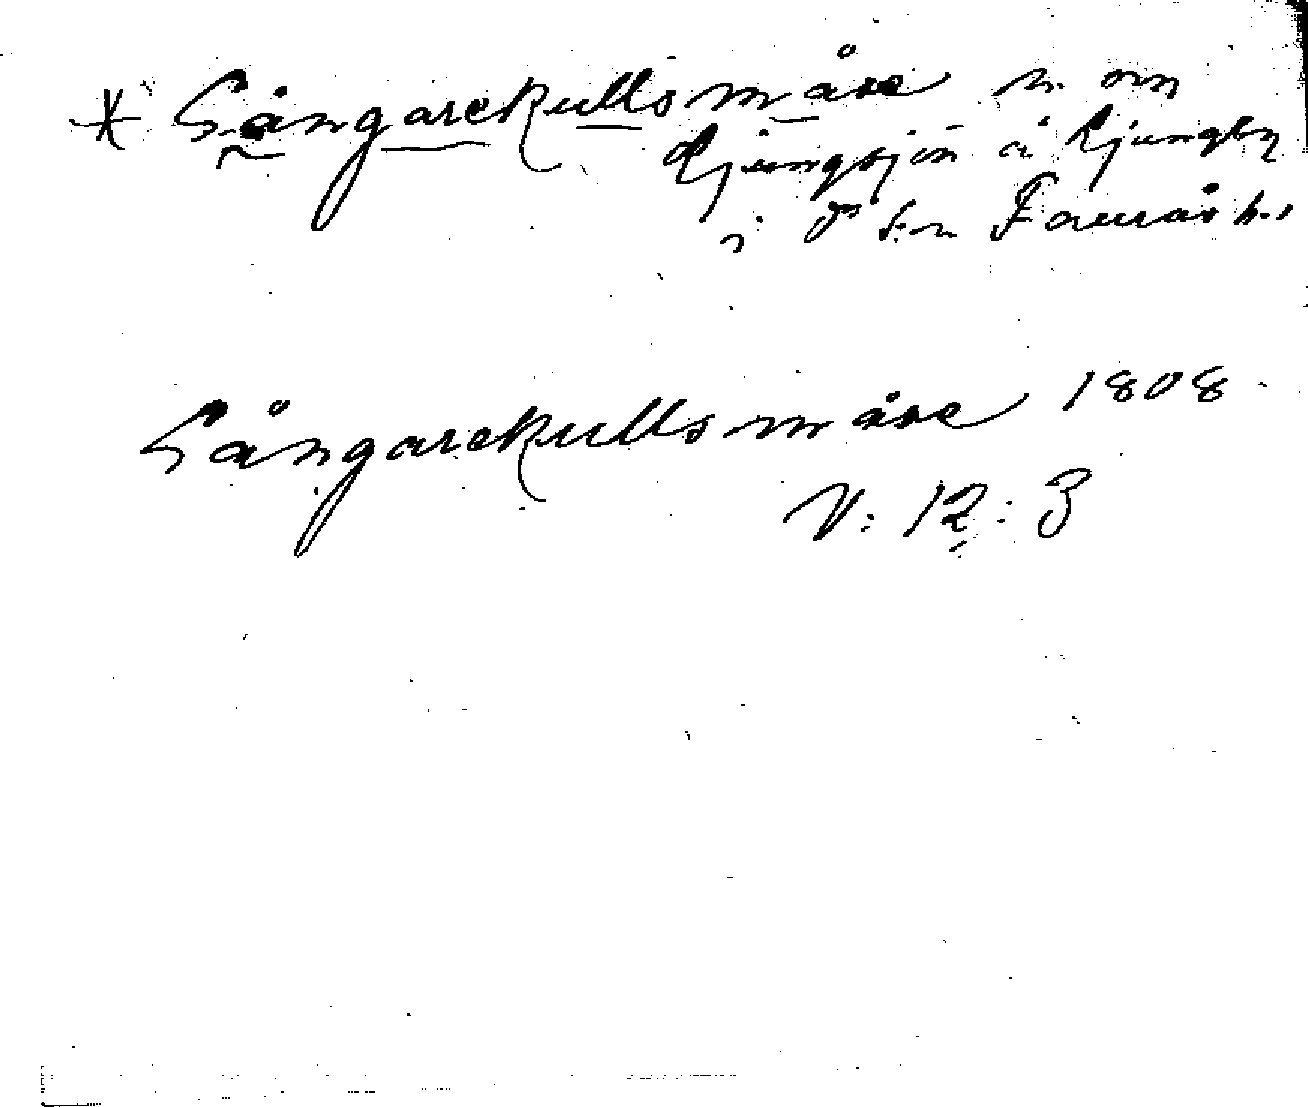 * Sångarekulls måse n. om
Ljungsjön å Ljungby
i d:s s:n Fauråsh.
Sångarekulls måse 1808
V: 12: 3